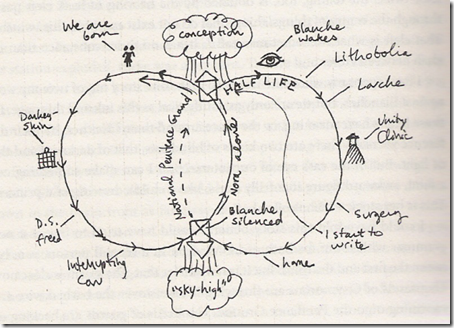 We are
born
conception
Blanche
wakes
Lithobolia
HALF LIFE
Donkey-
skin
National Penitence Ground
Nora alone
Unity
Clinic
D.S.
freed
Blanche
Silenced
surgery
I start to
write
Interrupting
Cow
home
"sky-high"